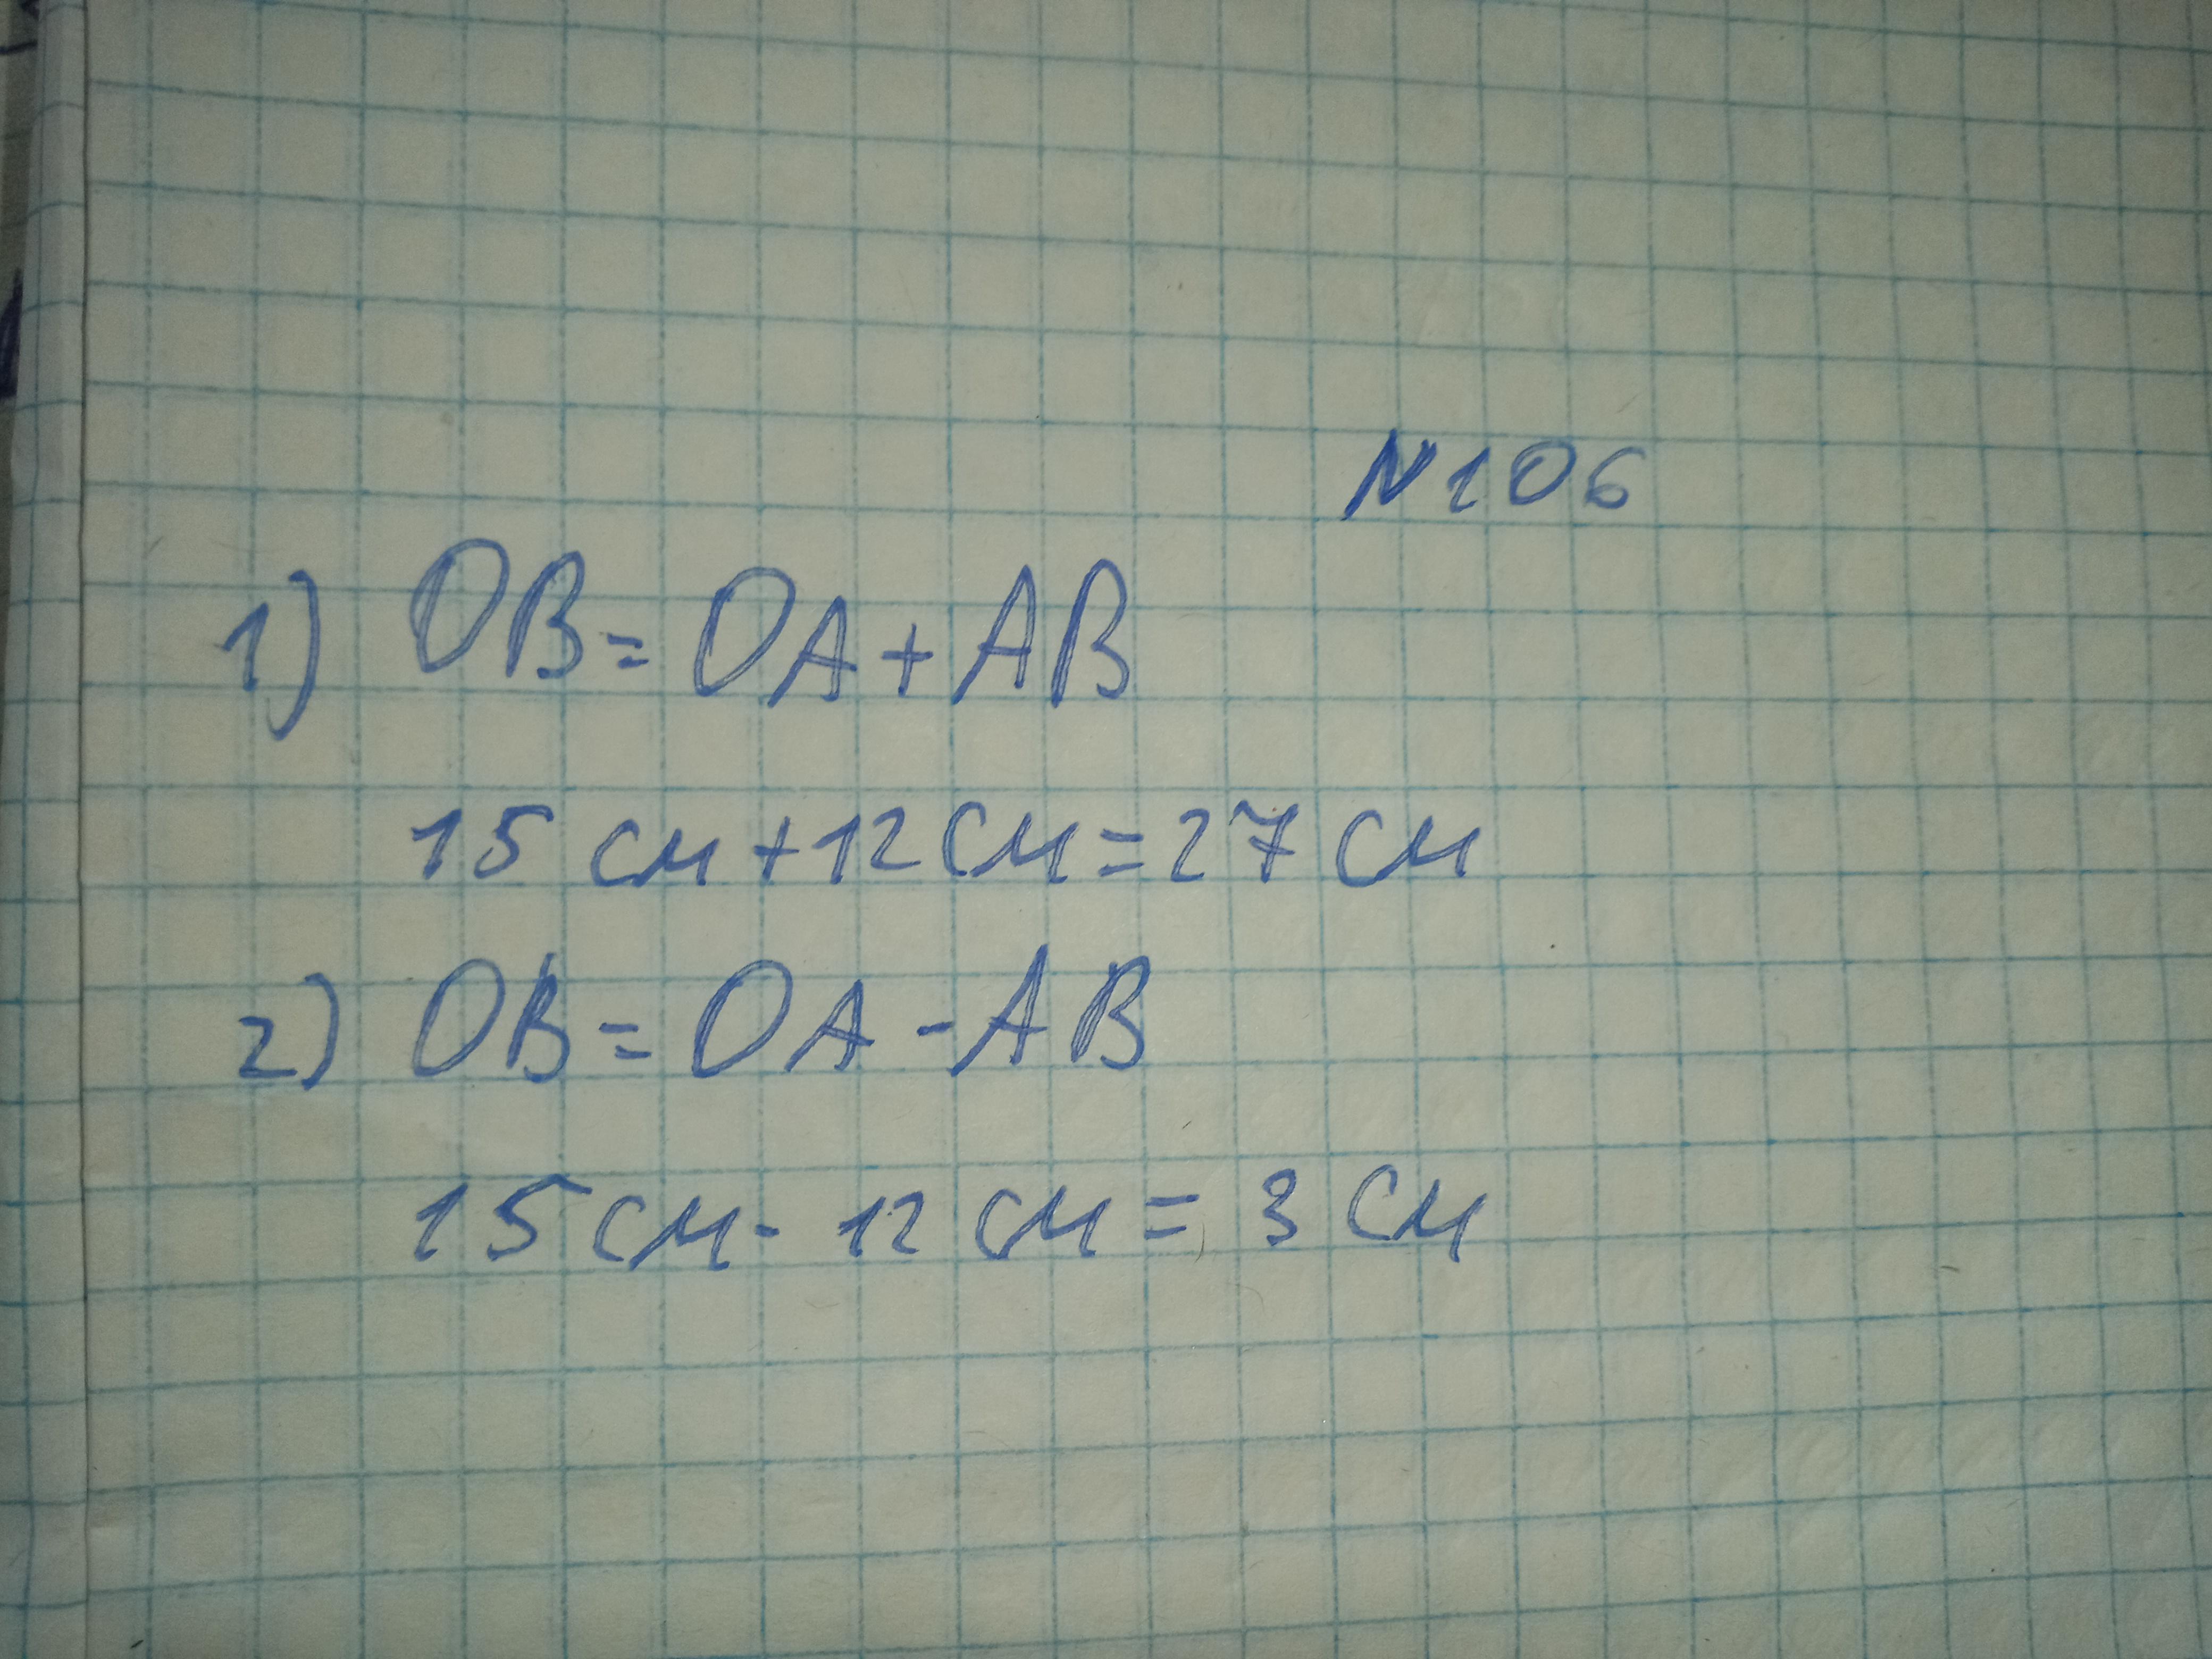 N106
1) OB = OA + AB
15 см + 12 см = 27 см
2) OB = OA - AB
15 см - 12 см = 3 см